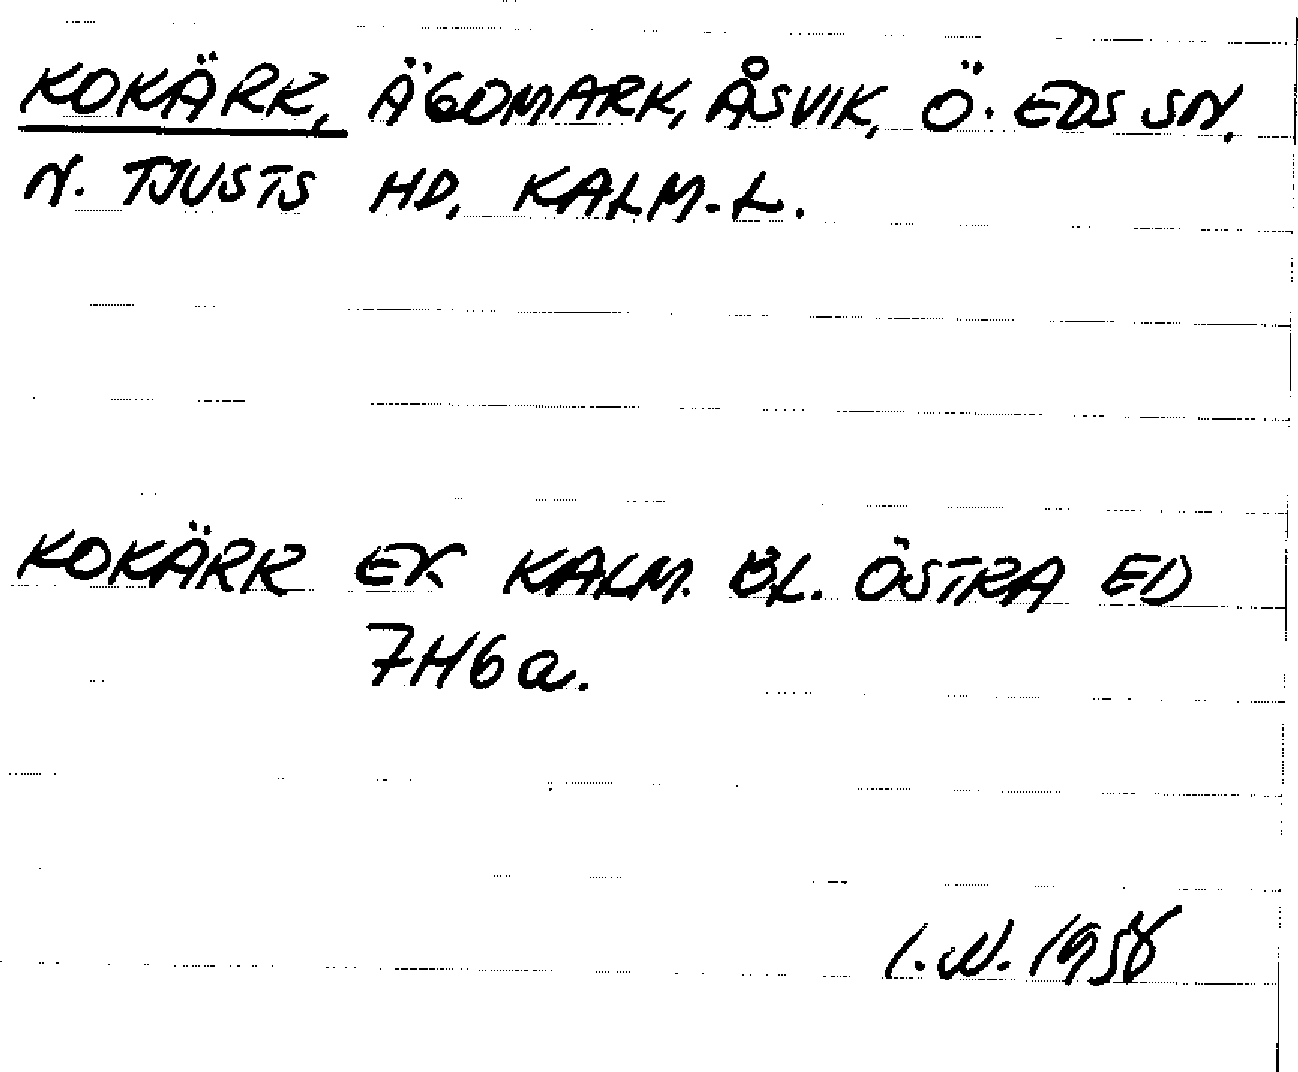 KOKÄRR, ÄGOMARK, ÅSVIK, Ö. EDS SN,
N. TJUSTS HD, KALM. L.
KOKÄRR EK KALM. BL. ÖSTRA ED
7H6a.
I.N. 1958